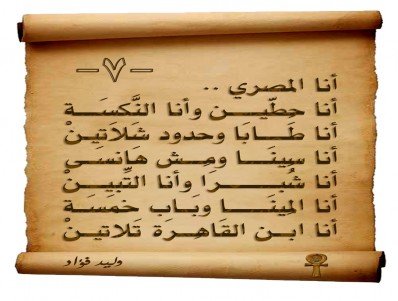 –٧–
أنا المصري ..
أنا حِطّيــن وأنا النَّكسَــة
أنا طَــابَا وحدود شلاتينْ
أنا سينَــا ومِـش هَانسَـى
أنا شُبــرَا وأنا التِّبيــنْ
أنا المِينَــا وبَـاب خمسَـة
أنا ابـن القَاهِـرَة تَلاتينْ
وليد فؤاد